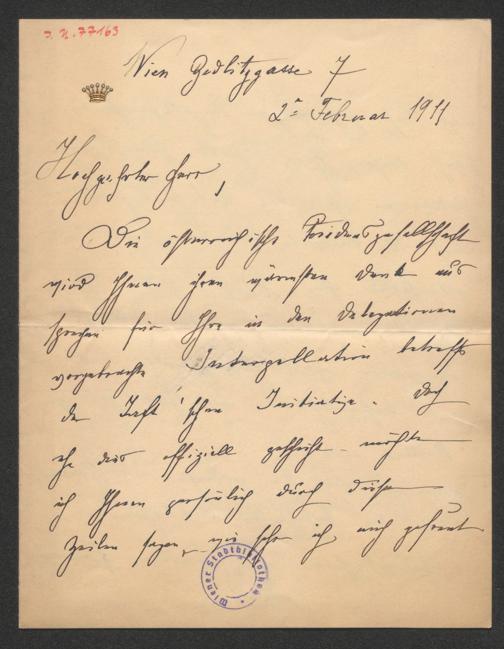 J. N. 77163
Wien Zedlitzgasse 7
2ᵗ Februar 1911
Hochgeehrter Herr,
Die österreichische Friedensgesellschaft
wird Ihnen ihren wärmsten Dank aus
sprechen für Ihre in den Delegationen
vorgebrachte Interpellation betreffs
der Taft'schen Initiative. Doch
ehe dies offiziell geschieht möchte
ich Ihnen persönlich durch diese
Zeilen sagen, wie sehr ich mich gefreut
Wiener Stadtbibliothek